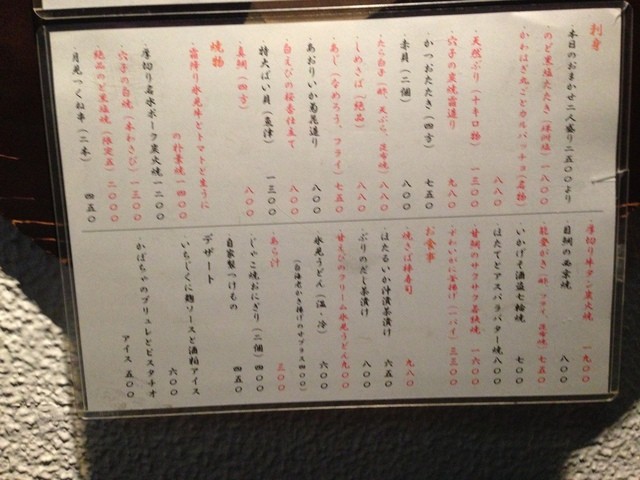 刺身
・本日のおまかせ二人盛り二五〇〇より
・のど黒塩たたき(珠洲塩)一八〇〇
・かわはぎ丸ごとカルパッチョ(名物)
一八〇〇
・天然ぶり(十キロ物)一三〇〇
・穴子の炭焼霜造り 九八〇
・かつおたたき(四方)七五〇
・赤貝(二個)八〇〇
・たら白子(酢、天ぷら、昆布焼)八八〇
・しめさば(絶品)八八〇
・あじ(なめろう、フライ)七五〇
・あおりいか菊花造り 八〇〇
・白えびの桜香仕立て 八〇〇
・特大ばい貝(魚津)一三〇〇
・真鯛(四方)八〇〇
焼物
・霜降り氷見牛とトマトと生うに
の朴葉焼一四〇〇
・厚切り名水ポーク炭火焼一二〇〇
・穴子の白焼(本わさび)一三〇〇
・絶品のど黒塩焼(限定五)二〇〇〇
・月見つくね串(二本)四五〇
・厚切り牛タン炭火焼 一九〇〇
・目鯛の西京焼 八〇〇
・能登がき(酢、フライ、昆布焼)七五〇
・いかげそ酒盗七輪焼 七〇〇
・ほたてとアスパラバター焼八〇〇
・甘鯛のサクサク若狭焼 一六〇〇
・ずわいがに甲揚げ(一パイ)三三〇〇
お食事
・焼さば棒寿司 九八〇
・ほたるいか沖漬茶漬け 六五〇
・ぶりのだし茶漬け 八〇〇
・甘えびのクリーム氷見うどん九〇〇
・氷見うどん(温・冷)六〇〇
(白海老かき揚げのせプラス四〇〇)
・あら汁 三〇〇
・じゃこ焼おにぎり(二個)四〇〇
・自家製つけもの 四五〇
デザート
・いちじくに麹ソースと酒粕アイス
六〇〇
・かぼちゃのブリュレとピスタチオ
アイス 五〇〇